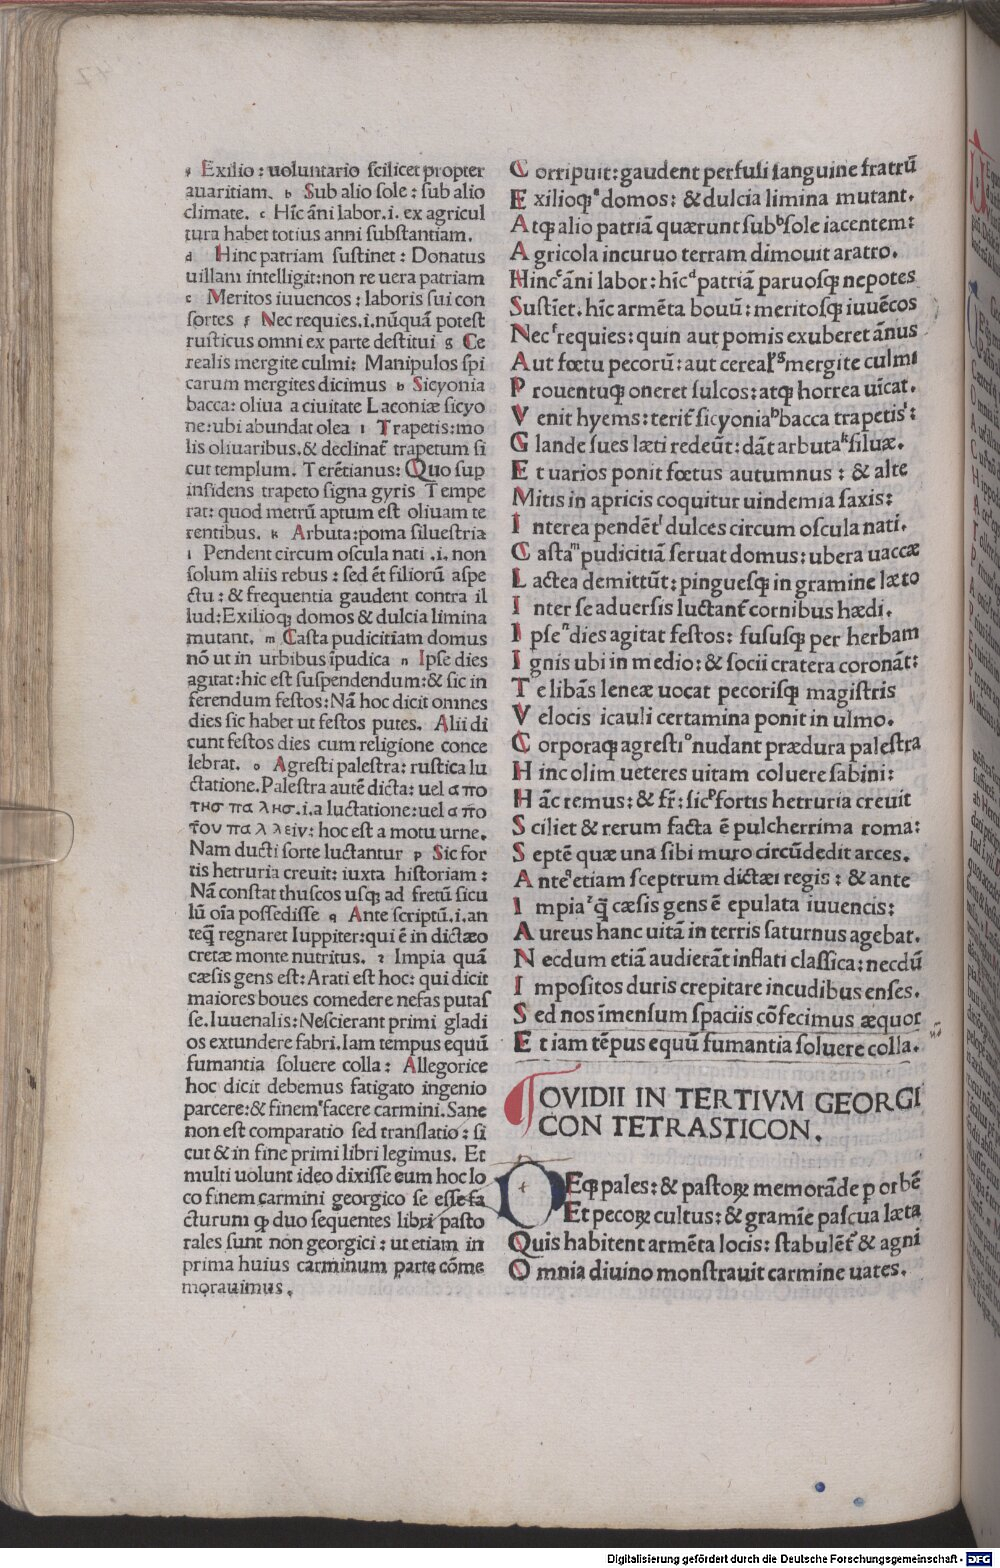 a Exilio : uoluntario scilicet propter
auaritiam. b Sub alio sole : sub alio
climate. c Hīc āni labor .i. ex agricul
tura habet totius anni substantiam.
d Hinc patriam sustinet : Donatus
uillam intelligit: non re uera patriam
e Meritos iuuencos : laboris sui con
sortes f Nec requies .i. nūquā potest
rusticus omni ex parte destitui g Ce
realis mergite culmi: Manipulos spi
carum mergites dicimus h Sicyonia
bacca: oliua a ciuitate Laconiæ sicyo
ne: ubi abundat olea i Trapetis: mo
lis oliuaribus. & declinat̄ trapetum si
cut templum. Terētianus: Quo sup
insidens trapeto signa gyris Tempe
rat: quod metrū aptum est oliuam te
rentibus. k Arbuta: poma siluestria
l Pendent circum oscula nati .i. non
solum aliis rebus : sed ēt filiorū aspe
ctu : & frequentia gaudent contra il
lud: Exilioq; domos & dulcia limina
mutant. m Casta pudicitiam domus
nō ut in urbibus īpudica n Ipse dies
agitat: hic est suspendendum: & sic in
ferendum festos: Nā hoc dicit omnes
dies sic habet ut festos putes. Alii di
cunt festos dies cum religione conce
lebrat. o Agresti palestra: rustica lu
ctatione. Palestra autē dicta: uel απο
τησ πα λησ .i. a luctatione: uel απο
του πα λ λειν: hoc est a motu urne.
Nam ducti sorte luctantur p Sic for
tis hetruria creuit: iuxta historiam :
Nā constat thuscos usq; ad fretū sicu
lū oīa possedisse q Ante scriptū .i. an
teq̄ regnaret Iuppiter: qui ē in dictæo
cretæ monte nutritus. r Impia quā
cæsis gens est: Arati est hoc: qui dicit
maiores boues comedere nefas putas
se. Iuuenalis: Nescierant primi gladi
os extundere fabri. Iam tempus equū
fumantia soluere colla : Allegorice
hoc dicit debemus fatigato ingenio
parcere: & finem facere carmini. Sane
non est comparatio sed translatio: si
cut & in fine primi libri legimus. Et
multi uolunt ideo dixisse eum hoc lo
co finem carmini georgico se esse fa
cturum q; duo sequentes libri pasto
rales sunt non georgici : ut etiam in
prima huius carminum parte cōme
morauimus.
Corripuit: gaudent perfusi sanguine fratrū
Exilioq; a domos: & dulcia limina mutant.
Atq; alio patriā quærunt sub b sole iacentem:
Agricola incuruo terram dimouit aratro.
Hinc c āni labor: hīc d patriā paruosq; nepotes
Sustīet. hīc armēta bouū: meritosq; e iuuēcos
Nec f requies: quin aut pomis exuberet ānus
Aut fœtu pecorū: aut cereal̄ g mergite culmi
Prouentuq; oneret sulcos: atq; horrea uīcat.
Venit hyems: terit̄ sicyonia h bacca trapetis i :
Glande sues læti redeūt: dāt arbuta k siluæ.
Et uarios ponit fœtus autumnus : & alte
Mitis in apricis coquitur uindemia saxis:
Interea pendēt l dulces circum oscula nati.
Casta m pudicitiā seruat domus: ubera uaccæ
Lactea demittūt: pinguesq; in gramine læto
Inter se aduersis luctant̄ cornibus hædi.
Ipse n dies agitat festos: fususq; per herbam
Ignis ubi in medio: & socii cratera coronāt:
Te libās leneæ uocat pecorisq; magistris
Velocis icauli certamina ponit in ulmo.
Corporaq; agresti o nudant prædura palestra
Hinc olim ueteres uitam coluere sabini:
Hāc remus: & fr̄: sic p fortis hetruria creuit
Sciliet & rerum facta ē pulcherrima roma:
Septē quæ una sibi muro circūdedit arces.
Ante q etiam sceptrum dictæi regis : & ante
Impia r q̄ cæsis gens ē epulata iuuencis:
Aureus hanc uitā in terris saturnus agebat.
Necdum etiā audierāt inflati classica: necdū
Impositos duris crepitare incudibus enses.
Sed nos īmensum spaciis cōfecimus æquor
Et iam tēpus equū fumantia soluere colla.
OVIDII IN TERTIVM GEORGI
CON TETRASTICON.
Eq; pales: & pastoꝝ memorāde p orbē
Et pecoꝝ cultus: & gramīe pascua læta
Quis habitent armēta locis: stabulēt̄ & agni
Omnia diuino monstrauit carmine uates.
Digitalisierung gefördert durch die Deutsche Forschungsgemeinschaft - DFG